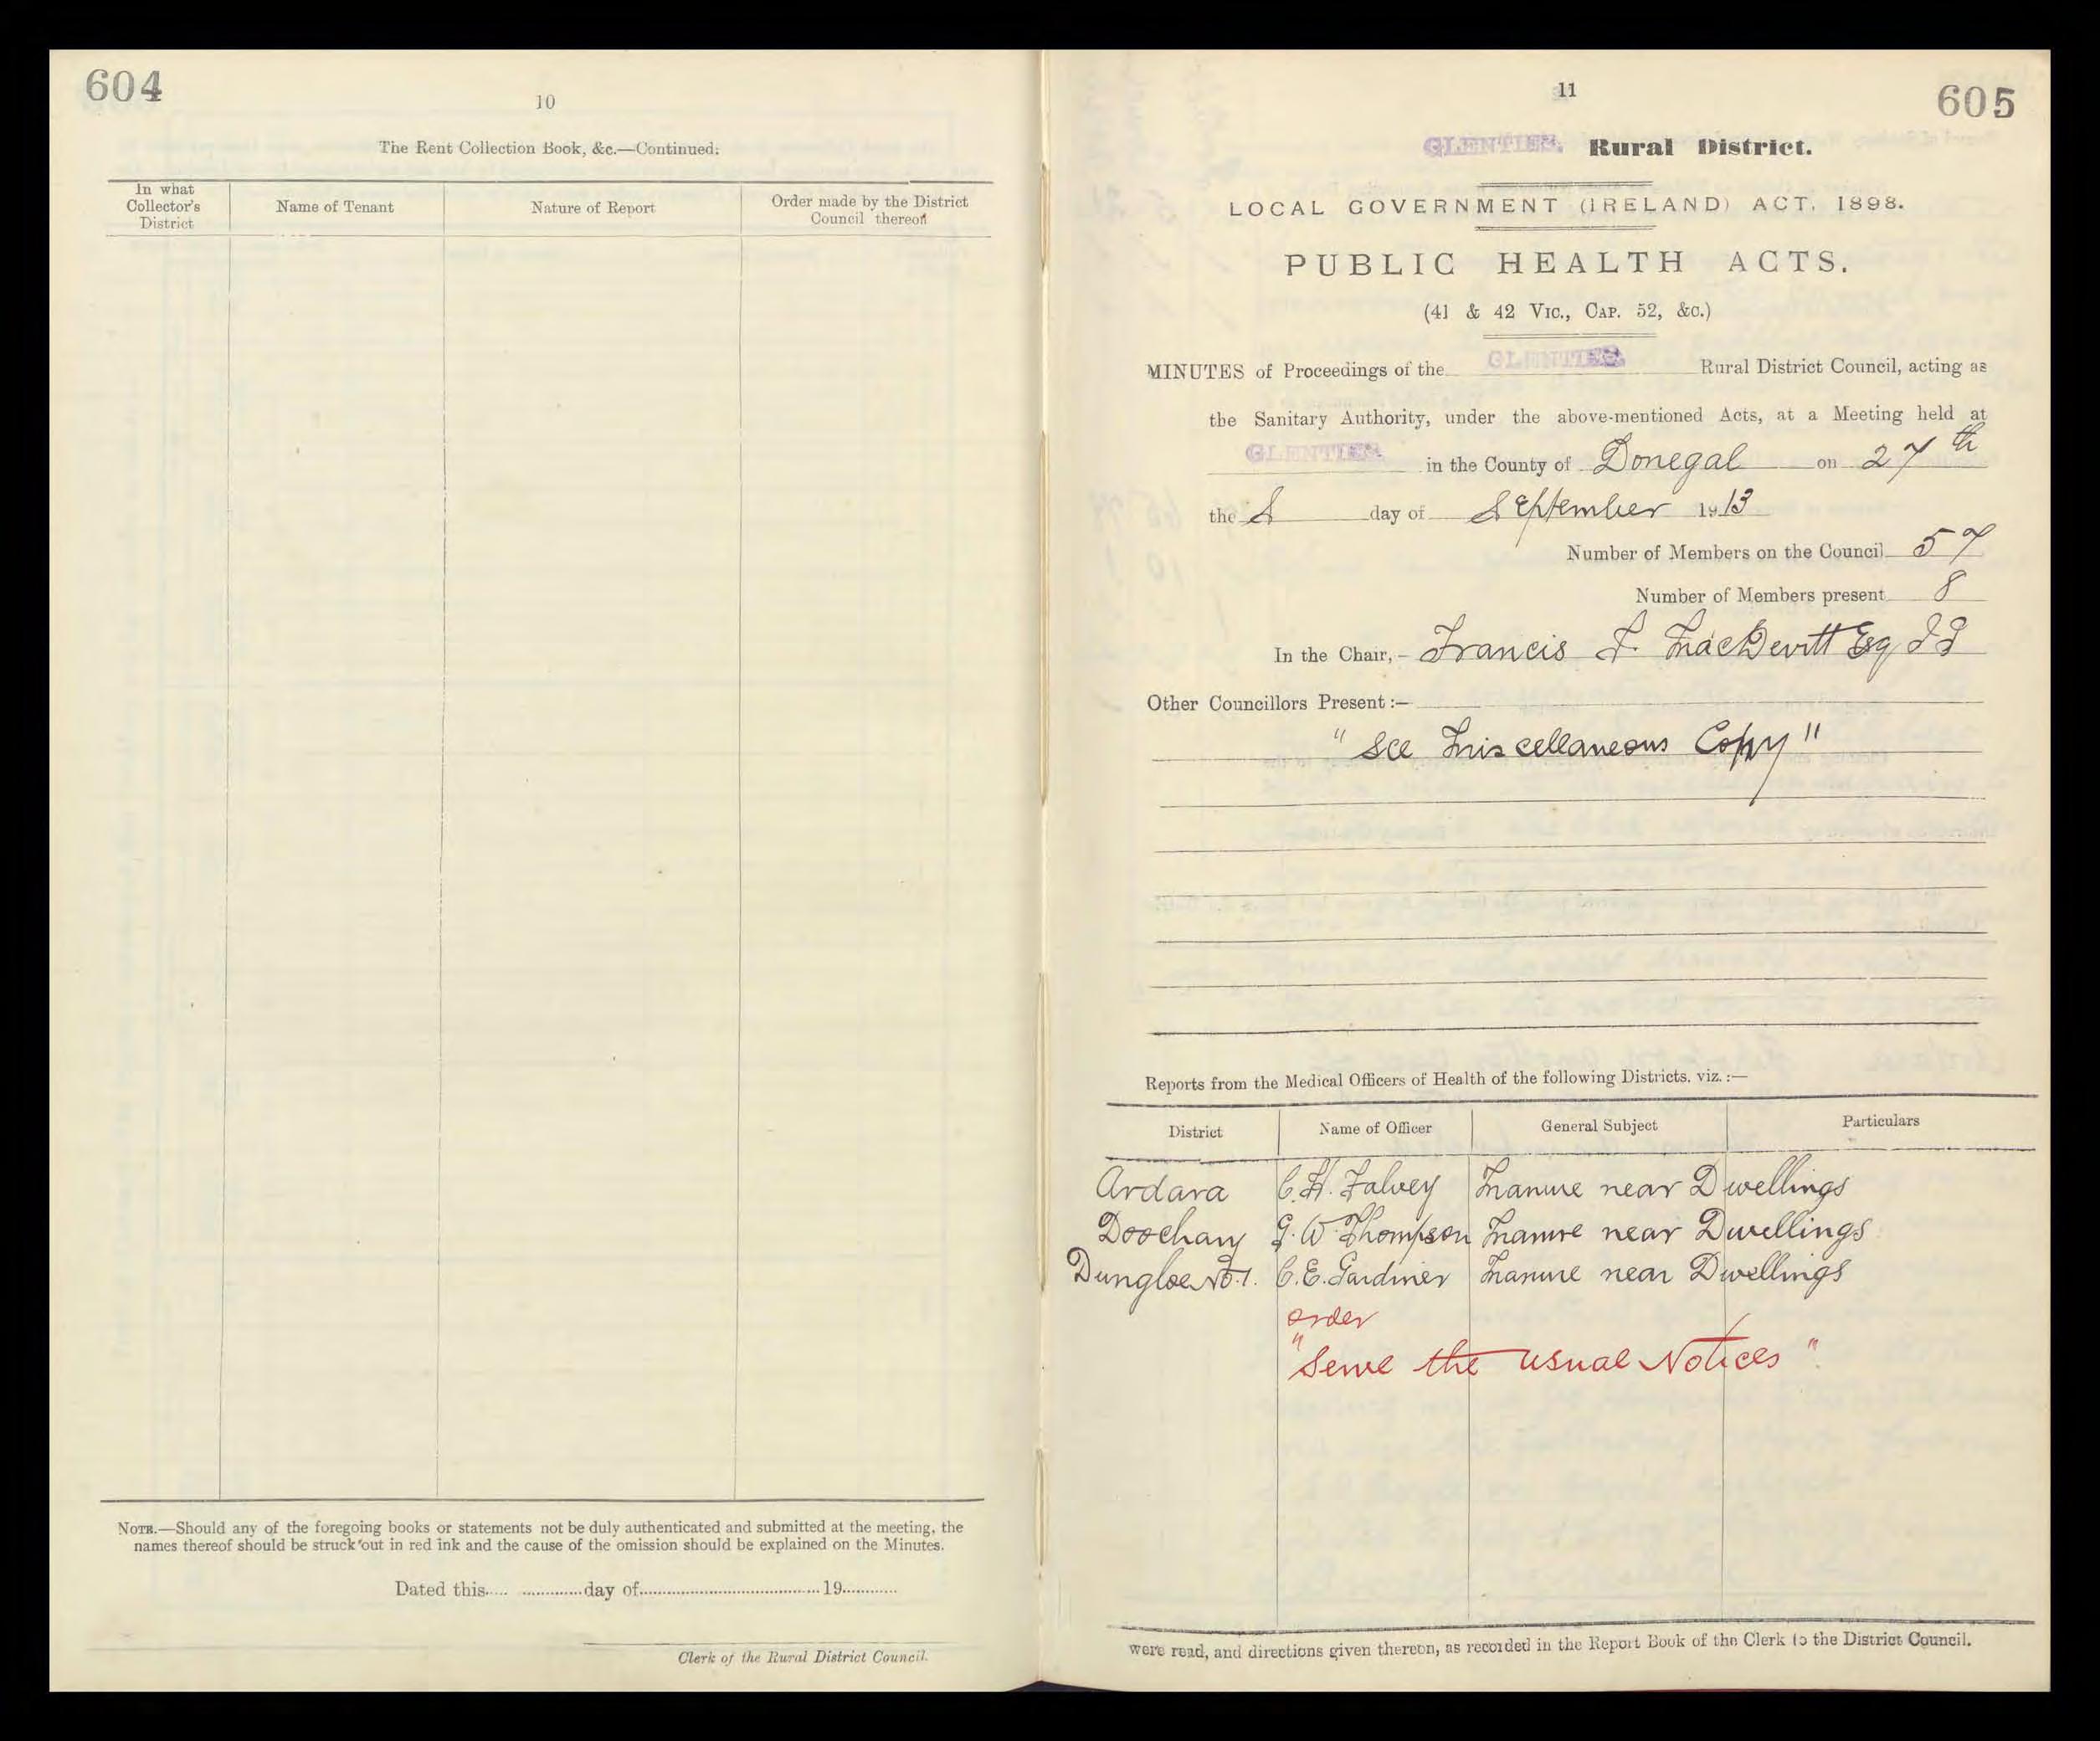 604
10
The Rent Collection Book, &c.—Continued.
In what Collector's District
Name of Tenant
Nature of Report
Order made by the District Council thereon
NOTE.—Should any of the foregoing books or statements not be duly authenticated and submitted at the meeting, the
names thereof should be struck out in red ink and the cause of the omission should be explained on the Minutes.
Dated this..... .............day of........................................19............
Clerk of the Rural District Council.
11
605
GLENTIES. Rural District.
LOCAL GOVERNMENT (IRELAND) ACT, 1898.
PUBLIC HEALTH ACTS.
(41 & 42 VIC., CAP. 52, &c.)
MINUTES of Proceedings of the GLENTIES. Rural District Council, acting as
the Sanitary Authority, under the above-mentioned Acts, at a Meeting held at
GLENTIES. in the County of Donegal on 27th
the day of September 1913
Number of Members on the Council 57
Number of Members present 8
In the Chair,— Francis J. MacDevitt Esq JP
Other Councillors Present :—
"See Miscellaneous Copy"
Reports from the Medical Officers of Health of the following Districts, viz. :—
District Name of Officer General Subject Particulars
Ardara C.H. Falvey Manure near Dwellings
Doochary G.W. Thompson Manure near Dwellings
Dungloe No.1. C.E. Gardiner Manure near Dwellings
order
"Serve the usual Notices"
were read, and directions given thereon, as recorded in the Report Book of the Clerk to the District Council.